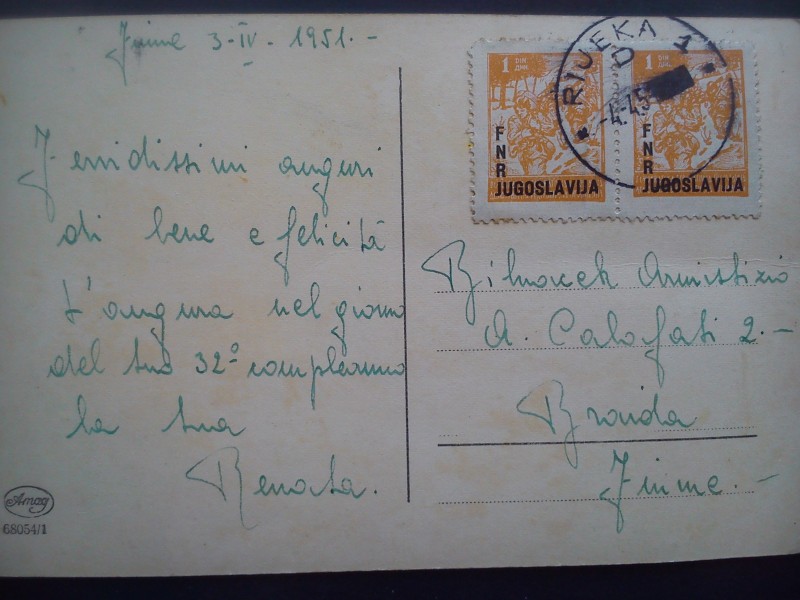 Fiume 3-IV-1951.-
Fervidissimi auguri
di bene e felicità
t'augura nel giorno
del tuo 32° compleanno
la tua
Renata.
Amag
68054/1
RIJEKA 1
D
-4.4.5
1 DIN ДИН.
FNR
JUGOSLAVIJA
1 DIN ДИН.
FNR
JUGOSLAVIJA
Armistizio
A. Calafati 2.-
Braida
Fiume.-